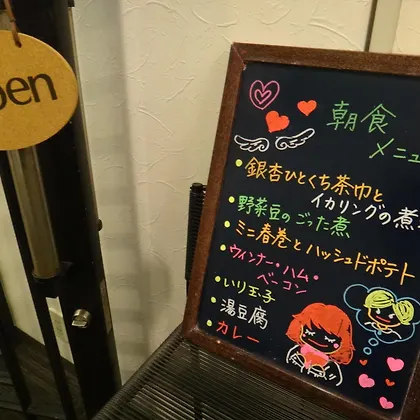 pen
朝食
メニュ
・銀杏ひとくち茶巾と
イカリングの煮
・野菜豆のごった煮
・ミニ春巻とハッシュドポテト
・ウィンナー・ハム・
ベーコン
・いり玉子
・湯豆腐
・カレー